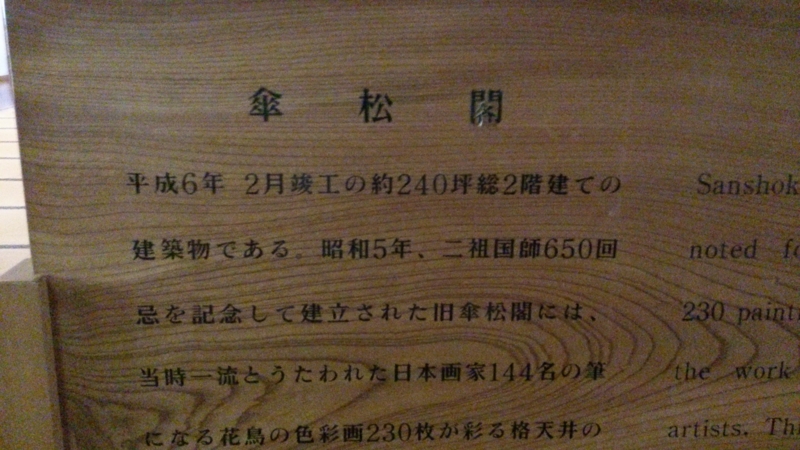 傘 松 閣
平成6年 2月竣工の約240坪総2階建ての
建築物である。昭和5年、二祖国師650回
忌を記念して建立された旧傘松閣には、
当時一流とうたわれた日本画家144名の筆
になる花鳥の色彩画230枚が彩る格天井の
Sanshok
noted fo
230 paint
the work
artists. Th